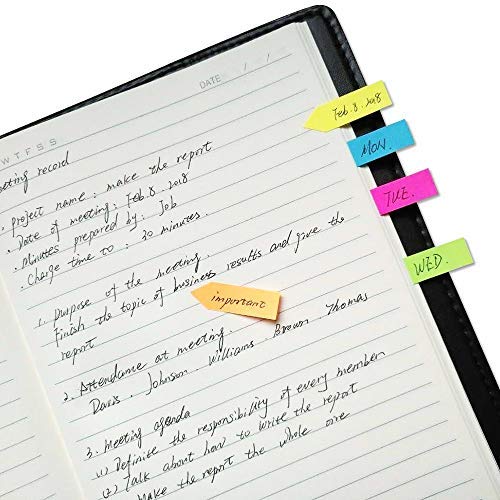 DATE / /
W T F S S
eeting record
. Project name : make the report
. Date of meeting : Feb.8 . 2018
. Minutes prepared by : Job
. Charge time to : 30 minutes.
1. Purpose of the meeting.
Finish the topic of business results and give the
report
important
2. Attendance at meeting.
Davis . Johnson . Williams . Brown . Thomas
3. meeting agenda
(1) Definite the responsibility of every member
(2) Talk about how to write the report
Make the report the whole one
Feb.8.2018
MON.
TUE.
WED.